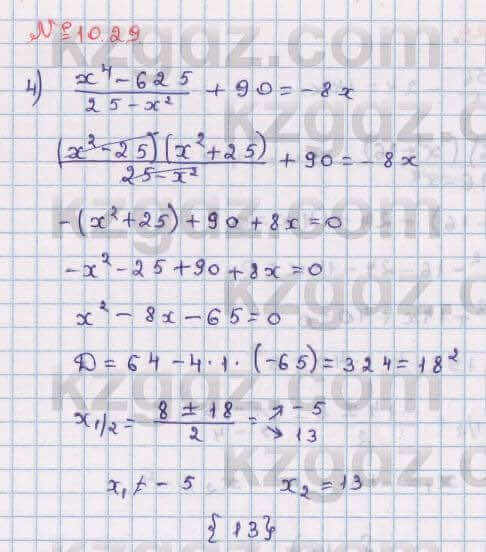 № 10.29
kzgdz.com
4) (x⁴ - 625)/(25 - x²) + 90 = -8x
((x² - 25)(x² + 25))/(25 - x²) + 90 = -8x
-(x² + 25) + 90 + 8x = 0
-x² - 25 + 90 + 8x = 0
x² - 8x - 65 = 0
D = 64 - 4·1·(-65) = 324 = 18²
x₁/₂ = (8 ± 18)/2 = ↗ -5 ↘ 13
x₁ ≠ -5 x₂ = 13
{13}